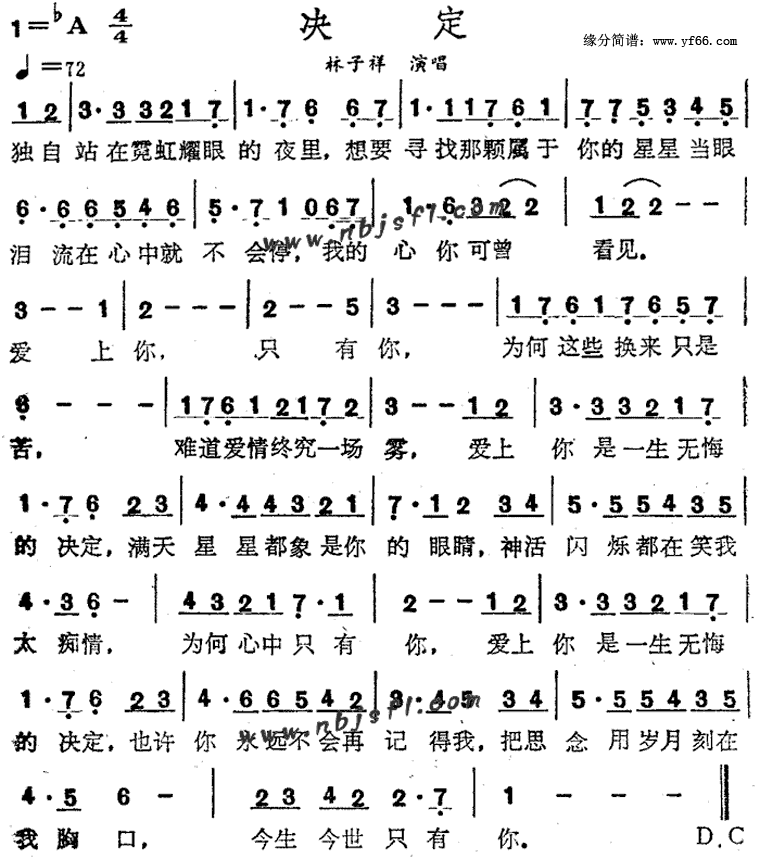 1=♭A 4/4 决 定 缘分简谱：www.yf66.com
♩=72 林子祥 演唱
1 2 | 3· 3 3 2 1 7 | 1· 7 6 6 7 | 1· 1 1 7 6 1 | 7 7 5 3 4 5 |
独自站在霓虹耀眼的夜里，想要寻找那颗属于你的星星当眼
6· 6 6 5 4 6 | 5· 7 1 0 6 7 | 1· 6 3 2 2 | 1 2 2 - - |
泪流在心中就不会停，我的心你可曾看见。
www.nbjsfl.com
3 - - 1 | 2 - - - | 2 - - 5 | 3 - - - | 1 7 6 1 7 6 5 7 |
爱上你，只有你，为何这些换来只是
6 - - - | 1 7 6 1 2 1 7 2 | 3 - - 1 2 | 3· 3 3 2 1 7 |
苦，难道爱情终究一场雾，爱上你是一生无悔
1· 7 6 2 3 | 4· 4 4 3 2 1 | 7· 1 2 3 4 | 5· 5 5 4 3 5 |
的决定，满天星星都象是你的眼睛，神活闪烁都在笑我
4· 3 6 - | 4 3 2 1 7· 1 | 2 - - 1 2 | 3· 3 3 2 1 7 |
太痴情，为何心中只有你，爱上你是一生无悔
1· 7 6 2 3 | 4· 6 6 5 4 2 | 3· 4 5 3 4 | 5· 5 5 4 3 5 |
的决定，也许你永远不会再记得我，把思念用岁月刻在
www.nbjsfl.com
4· 5 6 - | 2 3 4 2 2· 7 | 1 - - - ‖
我胸口，今生今世只有你。 D.C